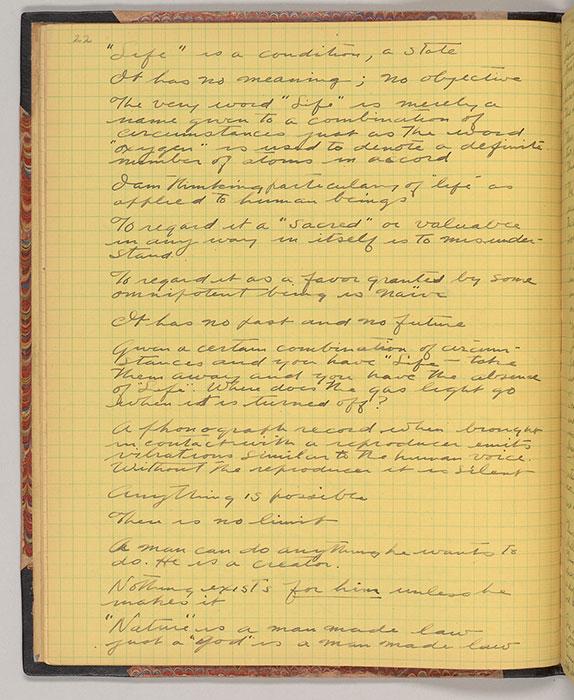 22
"Life" is a condition, a state
It has no meaning; no objective
The very word "Life" is merely a
name given to a combination of
circumstances just as the word
"oxygen" is used to denote a definite
number of atoms in accord
I am thinking particularly of "life" as
applied to human beings
To regard it a "sacred" or valuable
in any way in itself is to misunder-
stand
To regard it as a favor granted by some
omnipotent being is naïve
It has no past and no future
Given a certain combination of circum-
stances and you have "Life" - take
them away and you have the absence
of "Life". Where does the gas light go
when it is turned off?
A phonograph record when brought
in contact with a reproducer emits
vibrations similar to the human voice.
Without the reproducer it is silent
Anything is possible
There is no limit
A man can do anything he wants to
do. He is a creator.
Nothing exists for him unless he
makes it
"Nature" is a man made law
just a "God" is a man made law